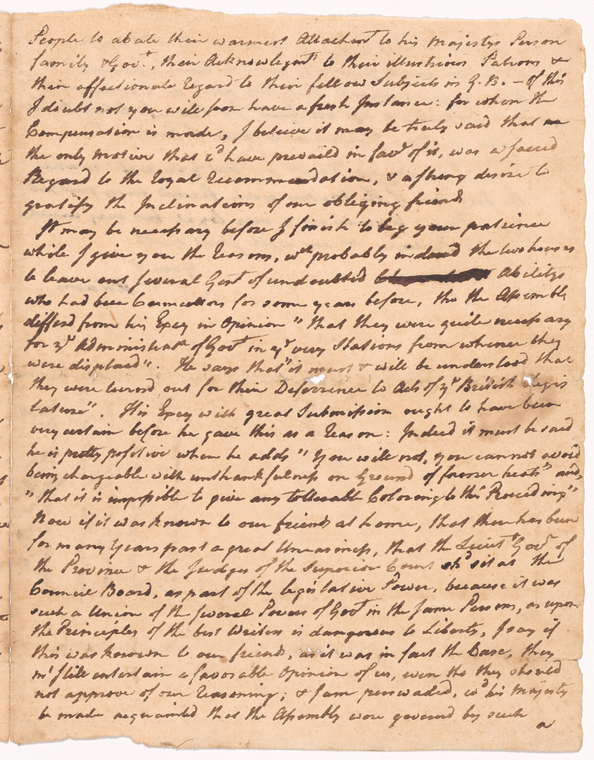 People to abate their warmest Attachmt to his Majestys Person
family & Govt, their Acknowlegmt to their illustrious Patrons &
their affectionate Regard to their fellow Subjects in G. B. – Of this
I doubt not you will soon have a fresh Instance: for when the
Compensation is made, I believe it may be truly said that
the only motive that cd have prevaild in favr of it, was a sacred
Regard to the royal Recommendation, & a strong desire to
gratify the Inclinations of our obliging friends
It may be necessary before I finish to beg your patience
while I give you the Reasons, wch probably inducd the two houses
to leave out several Gent of undoubted Abilitys
who had been Councellors for some years before, tho the Assembly
differd from his Excy in Opinion "that they were quite necessary
for ye Administratn of Govt in ye very Stations from whence they
were displacd". He says that "it must & will be understood that
they were turnd out for their Deferrence to Acts of ye British Legis
lature". His Excy with great Submission ought to have been
very certain before he gave this as a Reason: Indeed it must be said
he is pretty positive when he adds "You will not, you cannot avoid
being chargeable with unthankfulness on Ground of former heats" and
"that it is impossible to give any tollerable Coloring to this Proceeding"
Now if it was known to our friends at home, that there has been
for many Years past a great Uneasiness, that the Lieut Govr of
the Province & the Judges of the Superior Court sit at the
Council Board, as part of the legislative Power, because it was
such a Union of the several Powers of Govt in the same Persons, as upon
the Principles of the best Writers is dangerous to Liberty, I say if
this was known to our friends, as it was in fact the Case, they
mt still entertain a favorable Opinion of us, even tho they should
not approve of our Reasoning; & I am perswaded, cd his Majesty
be made acquainted that the Assembly were governd by such
a